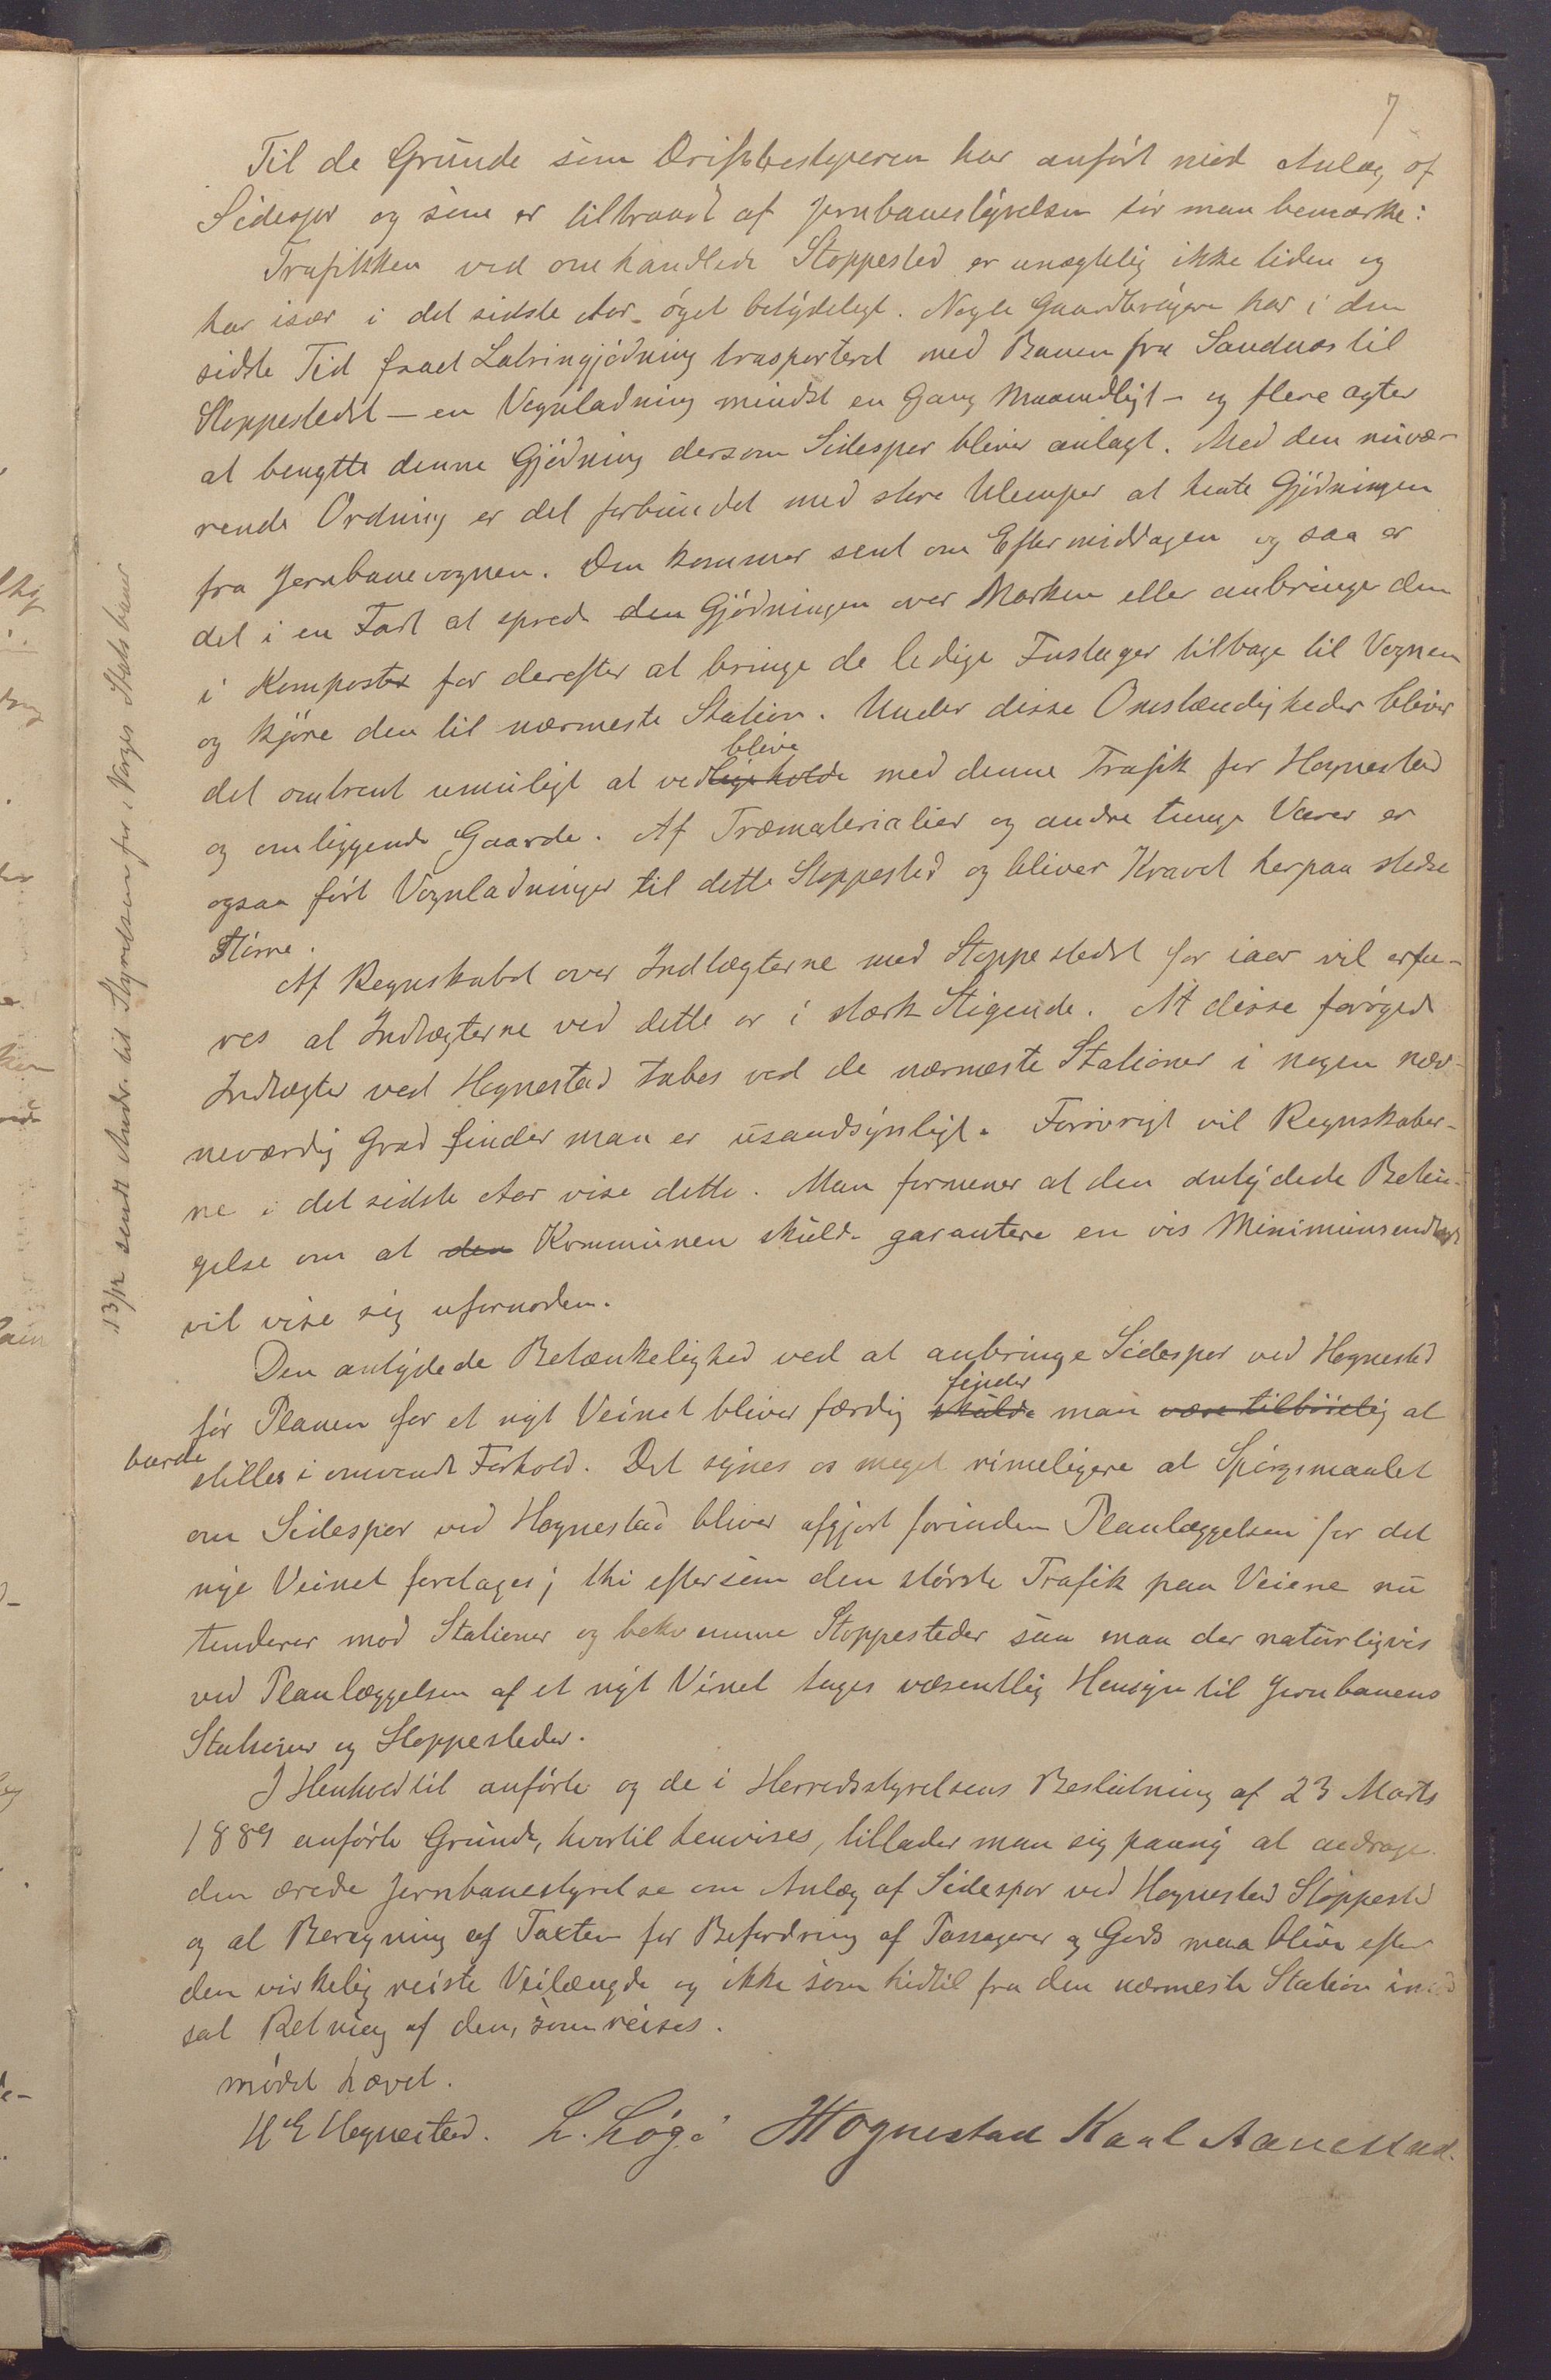 7
Til de Grunde som Driftsbestyreren har anført mod Anlæg af
Sidespor og som er tiltraadt af Jernbanestyrelsen tør man bemærke:
Trafikken ved omhandlede Stoppested er unægtelig ikke liden og
har især i det sidste Aar øget betydeligt. Nogle Gaardbrugere har i den
sidste Tid faaet Latringjødning trasporteret med Banen fra Sandnes til
Stoppestedet – en Vognladning mindst en Gang Maanedligt – og flere agter
at benytte denne Gjødning dersom Sidespor bliver anlagt. Med den nuvæ-
rende Ordning er det forbundet med store Ulemper at hente Gjødningen
fra Jernbanevognen. Den kommer sent om Eftermiddagen og saa er
det i en Fart at sprede den Gjødningen over Marken eller anbringe den
i Kompost for derefter at bringe de ledige Fustager tilbage til Vognen
og kjøre den til nærmeste Station. Under disse Omstændigheder bliver
det omtrent umuligt at vedligeholde blive med denne Trafik for Hognestad
og omliggende Gaarde. Af Træmaterialier og andre tunge Varer er
ogsaa ført Vognladninger til dette Stoppested og bliver Kravet herpaa stedse
større.
Af Regnskabet over Indtægterne med Stoppestedet for iaar vil erfa-
res at Indtægterne ved dette er i stærk Stigende. At disse forøgede
Indtægter ved Hognestad tabes ved de nærmeste Stationer i nogen næv-
neværdig Grad finder man er usandsynligt. Forøvrigt vil Regnskaber-
ne i det sidste Aar vise dette. Man formener at den antydede Betin-
gelse om at den Kommunen skulde garantere en vis Minimums
vil vise sig ufornøden.
Den antydede Betænkelighed ved at anbringe Sidespor ved Hognestad
før Planen for et nyt Veinet bliver færdig skulde finder man være tilbøielig at
burde stilles i omvendt Forhold. Det synes os meget rimeligere at Spørgsmaalet
om Sidespor ved Hognestad bliver afgjort forinden Planlæggelsen for det
nye Veinet foretages; thi eftersom den største Trafik paa Veiene nu
tenderer mod Stationer og bekvemme Stoppesteder saa maa der naturligvis
ved Planlæggelsen af et nyt Veinet tages væsentlig Hensyn til Jernbanens
Stationer og Stoppesteder.
I Henhold til anførte og de i Herredsstyrelsens Beslutning af 23 Marts
1889 anførte Grunde, hvortil henvises, tillader man sig paany at andrage
den ærede Jernbanestyrelse om Anlæg af Sidespor ved Hognestad Stoppested
og at Beregning af Taxten for Befordring af Passagerer og Gods maa blive efter
den virkelig reiste Veilængde og ikke som hidtil fra den nærmeste Station i mod
sat Retning af den, som reises.
mødet hævet.
H E Hognestad. L. Løge H Hognestad Karl Aanestad.
13/12 sendt Andr. til Styrelsen for i Norges Statsbaner